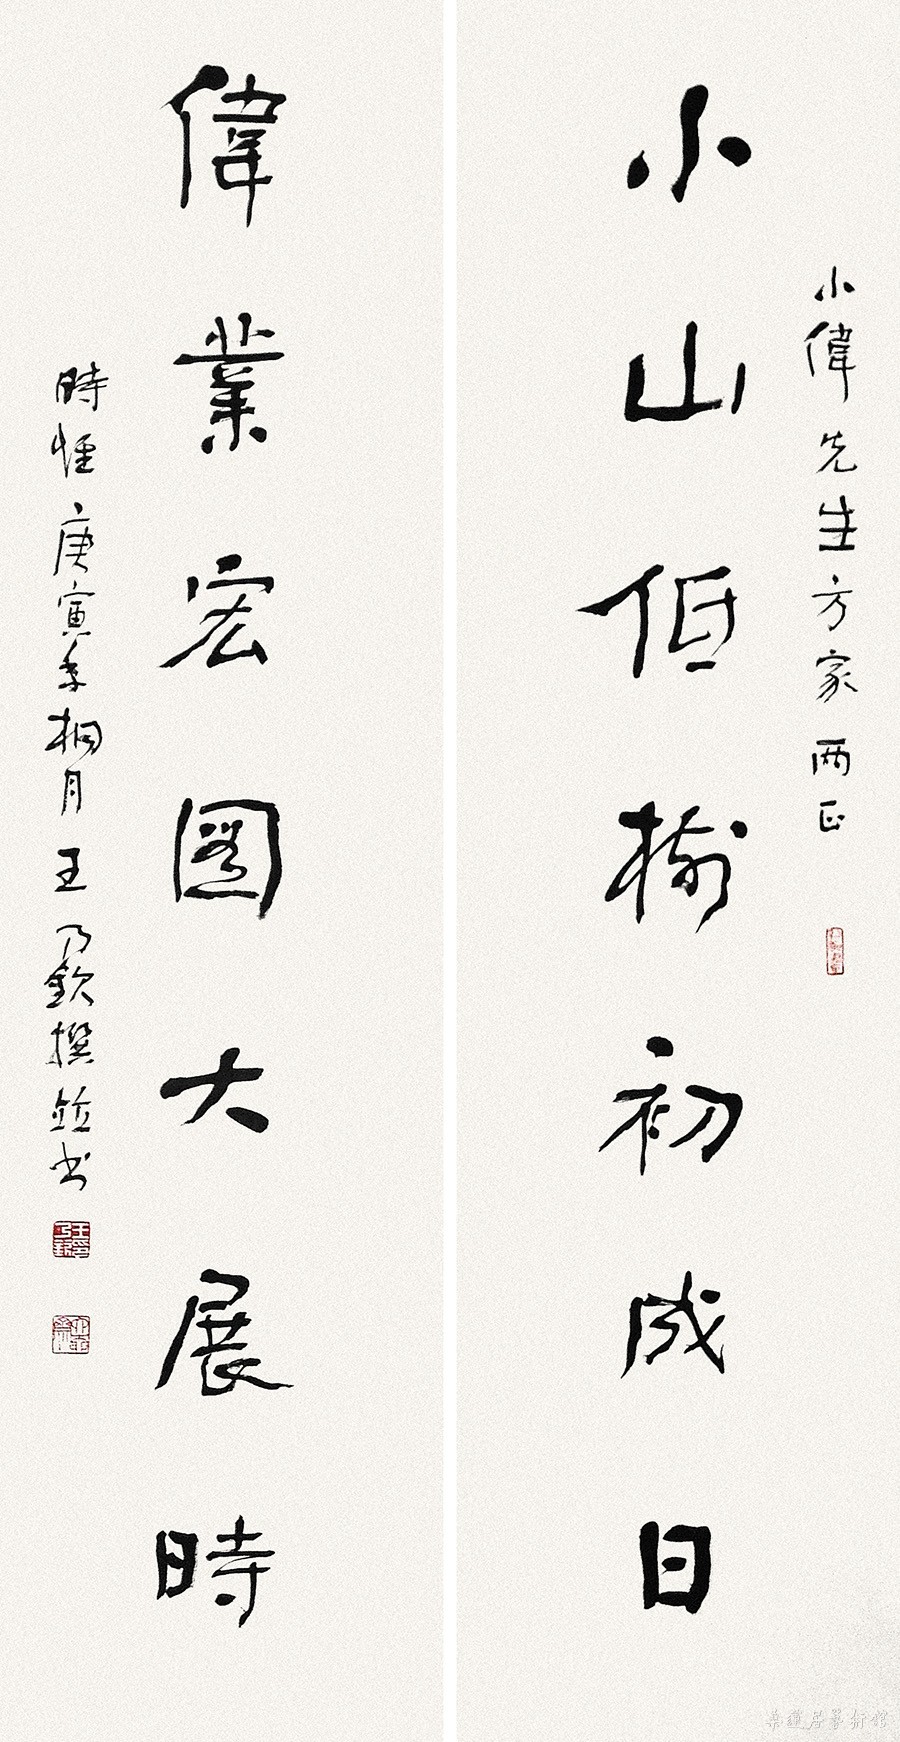 小偉先生方家兩正
小山低樹初成日
偉業宏圖大展時
時 庚寅年桐月王乃欽撰並書